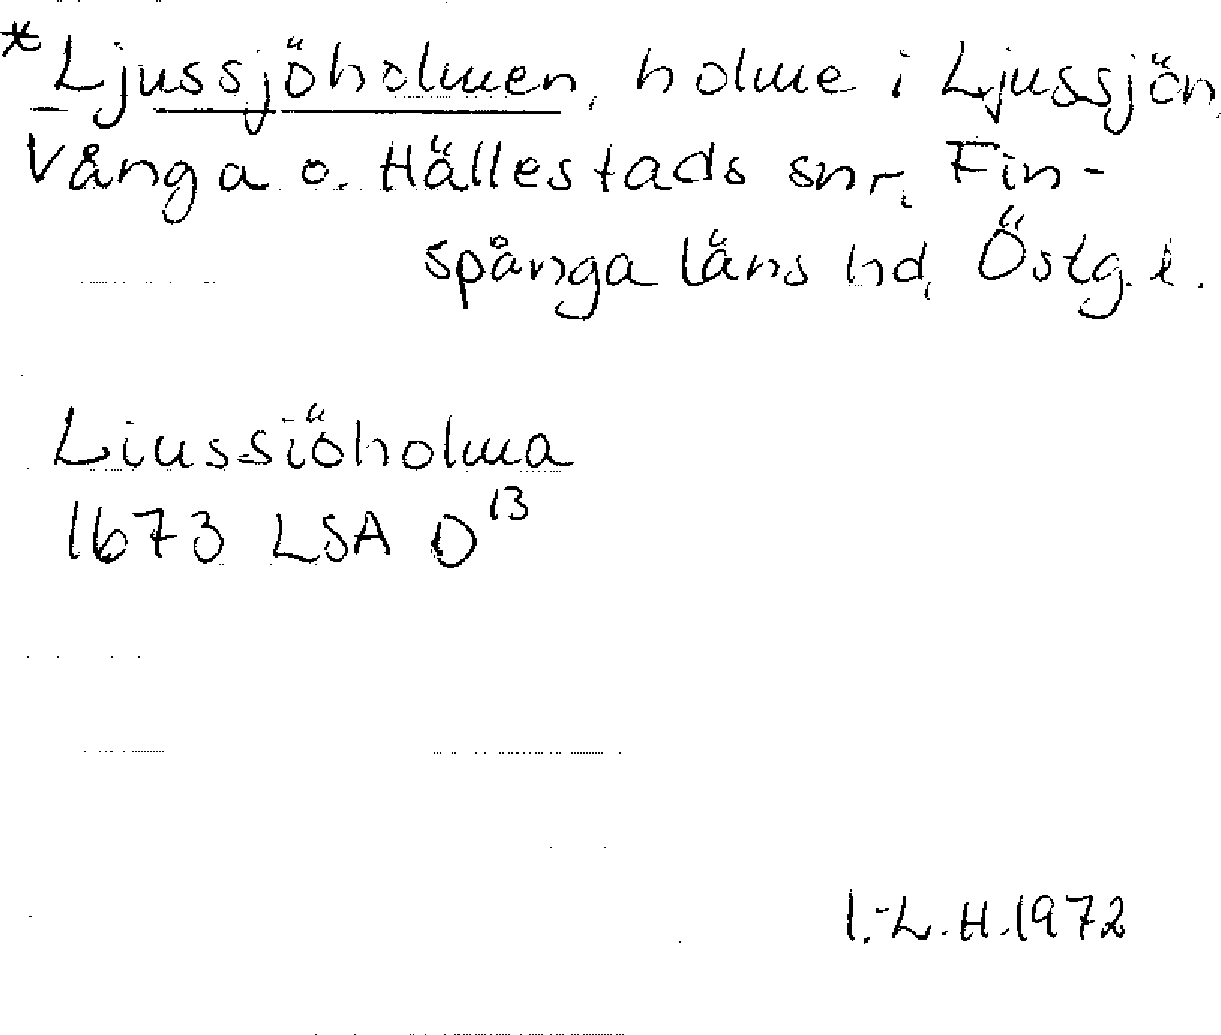 *Ljussjöholmen, holme i Ljussjön,
Vånga o. Hällestads snr, Fin-
spånga läns hd, Östg. l.
Liussiöholma
1673 LSA D¹³
I.-L. H. 1972